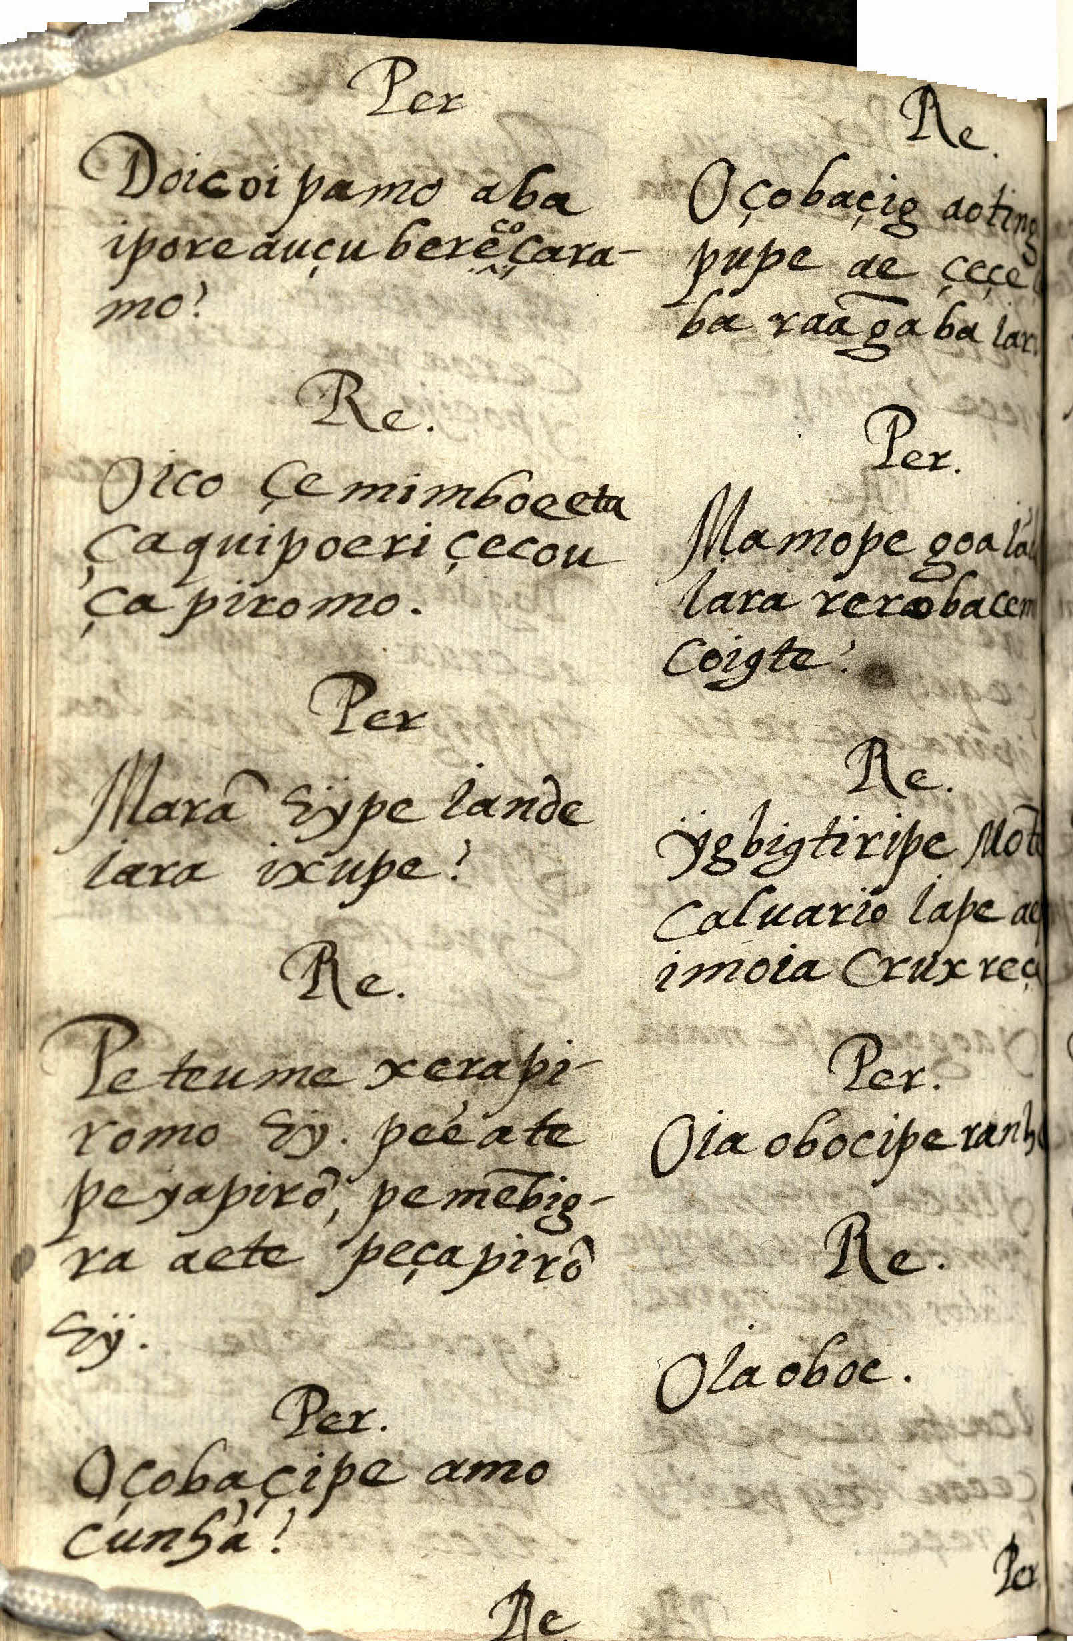 Per
Doicoipamo aba
iporeauçu berẽ co çara-
mo?
Re.
Oico çemimboeeta
çaquipoeri çecou
çapiromo.
Per
Marã Eÿpe iande
iara ixupe?
Re.
Peteume xerapi-
romo Ey. peẽ ate
peyapirõ, pemẽbig-
ra aete peçapirõ
Eÿ.
Per.
Oçobaçipe amo
cunhã?
Re
Re.
Oçobaçig aoting
pupe ae çeçe
ba raãgaba iar
Per.
Mamope goa
iara rerobacem
coigte?
Re.
Ÿgbigtiripe Mõt
Caluario iape ae
imoia Crux reç
Per.
Oia obocipe ranh
Re.
Oia oboc.
Per